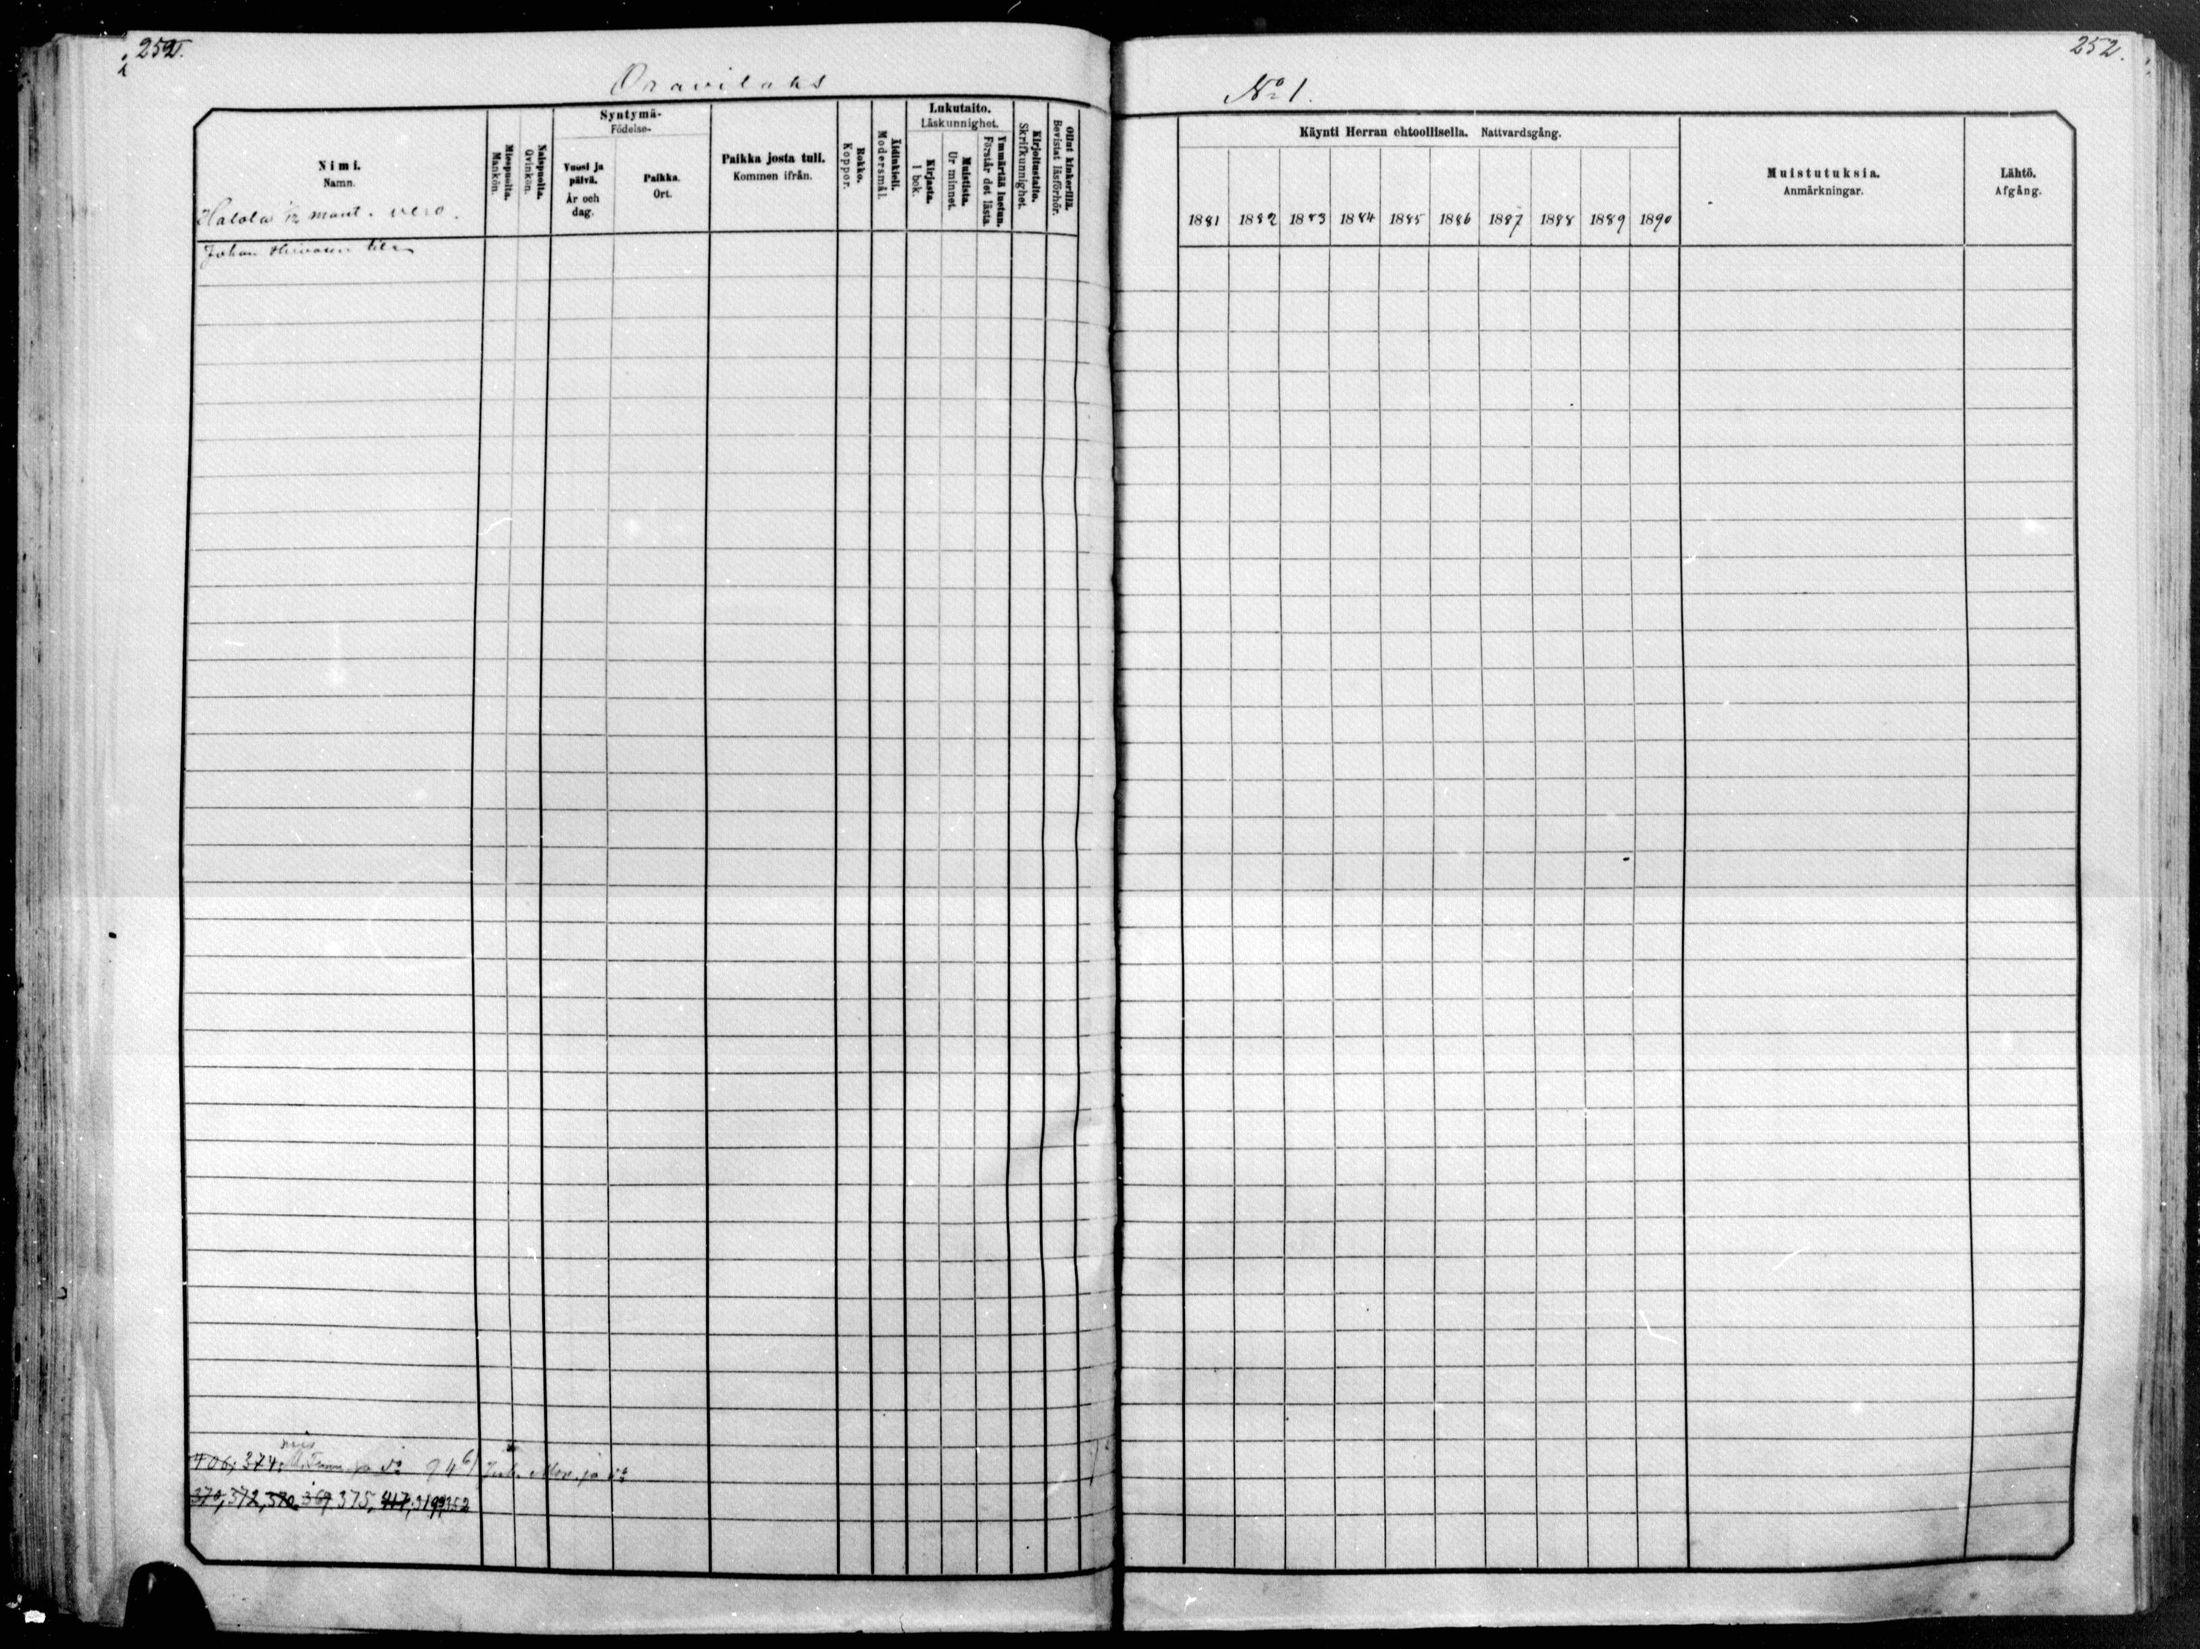 252.
252.
Oravilaks
No 1.
Nimi.
Namn.
Halola 1/12 mant. vero.
Miespuolta.
Mankön.
Naispuolta.
Qvinkön.
Syntymä-
Födelse-
Vuosi ja päivä.
År och dag.
Paikka.
Ort.
Paikka josta tuli.
Kommen ifrån.
Rokko.
Koppor.
Äidinkieli.
Modersmål.
Lukutaito.
Läskunnighet.
Kirjasta.
I bok.
Muistista.
Ur minnet.
Ymmärtää luetun.
Förstår det lästa.
Kirjoitustaito.
Skrifkunnighet.
Ollut kinkerillä.
Bevistat läsförhör.
Käynti Herran ehtoollisella. Nattvardsgång.
1881 1882 1883 1884 1885 1886 1887 1888 1889 1890
Muistutuksia.
Anmärkningar.
Lähtö.
Afgång.
Johan
406, 374,
370, 372, 370, 369 375, 417,